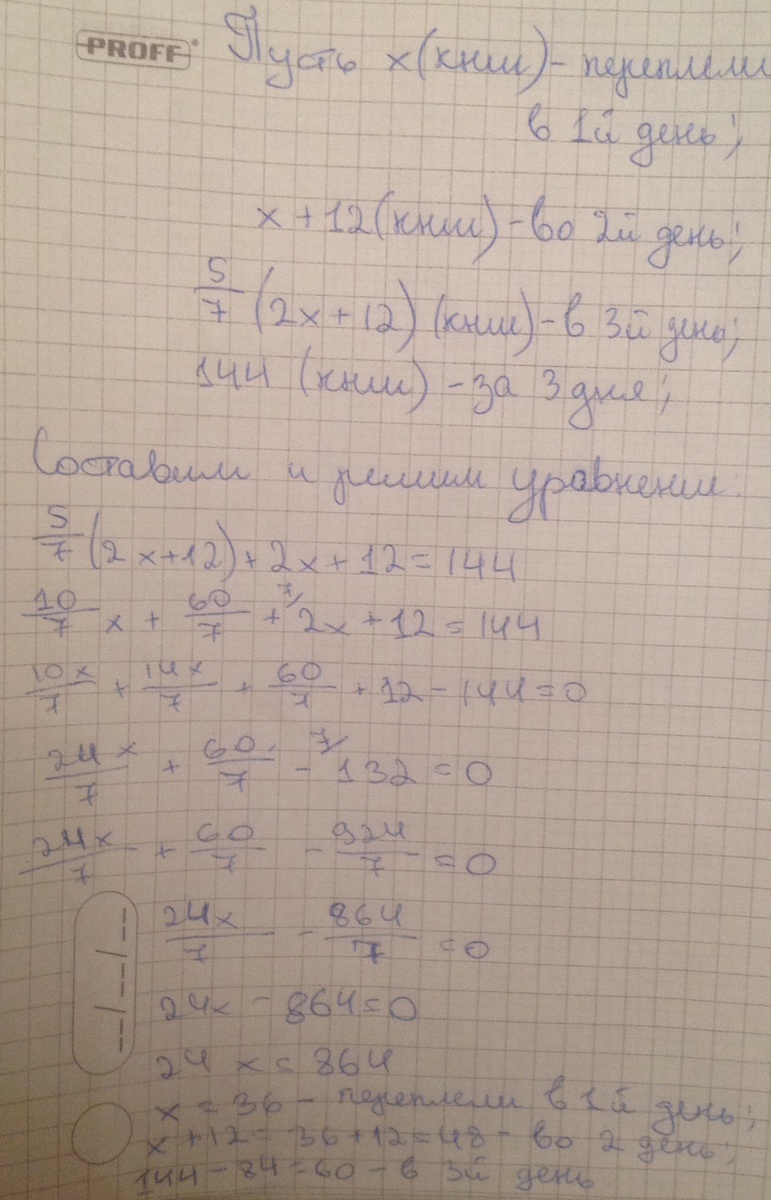 PROFF
Пусть x (книг) - переплели
в 1й день;
x + 12 (книг) - во 2й день;
5/7 (2x + 12) (книг) - в 3й день;
144 (книг) - за 3 дня;
Составим и решим уравнение:
5/7 (2x+12) + 2x + 12 = 144
10/7 x + 60/7 + 7/ 2x + 12 = 144
10x/7 + 14x/7 + 60/7 + 12 - 144 = 0
24x/7 + 60/7 - 7/ 132 = 0
24x/7 + 60/7 - 924/7 = 0
24x/7 - 864/7 = 0
24x - 864 = 0
24 x = 864
x = 36 - переплели в 1й день;
x + 12 = 36 + 12 = 48 - во 2 день;
144 - 84 = 60 - в 3й день